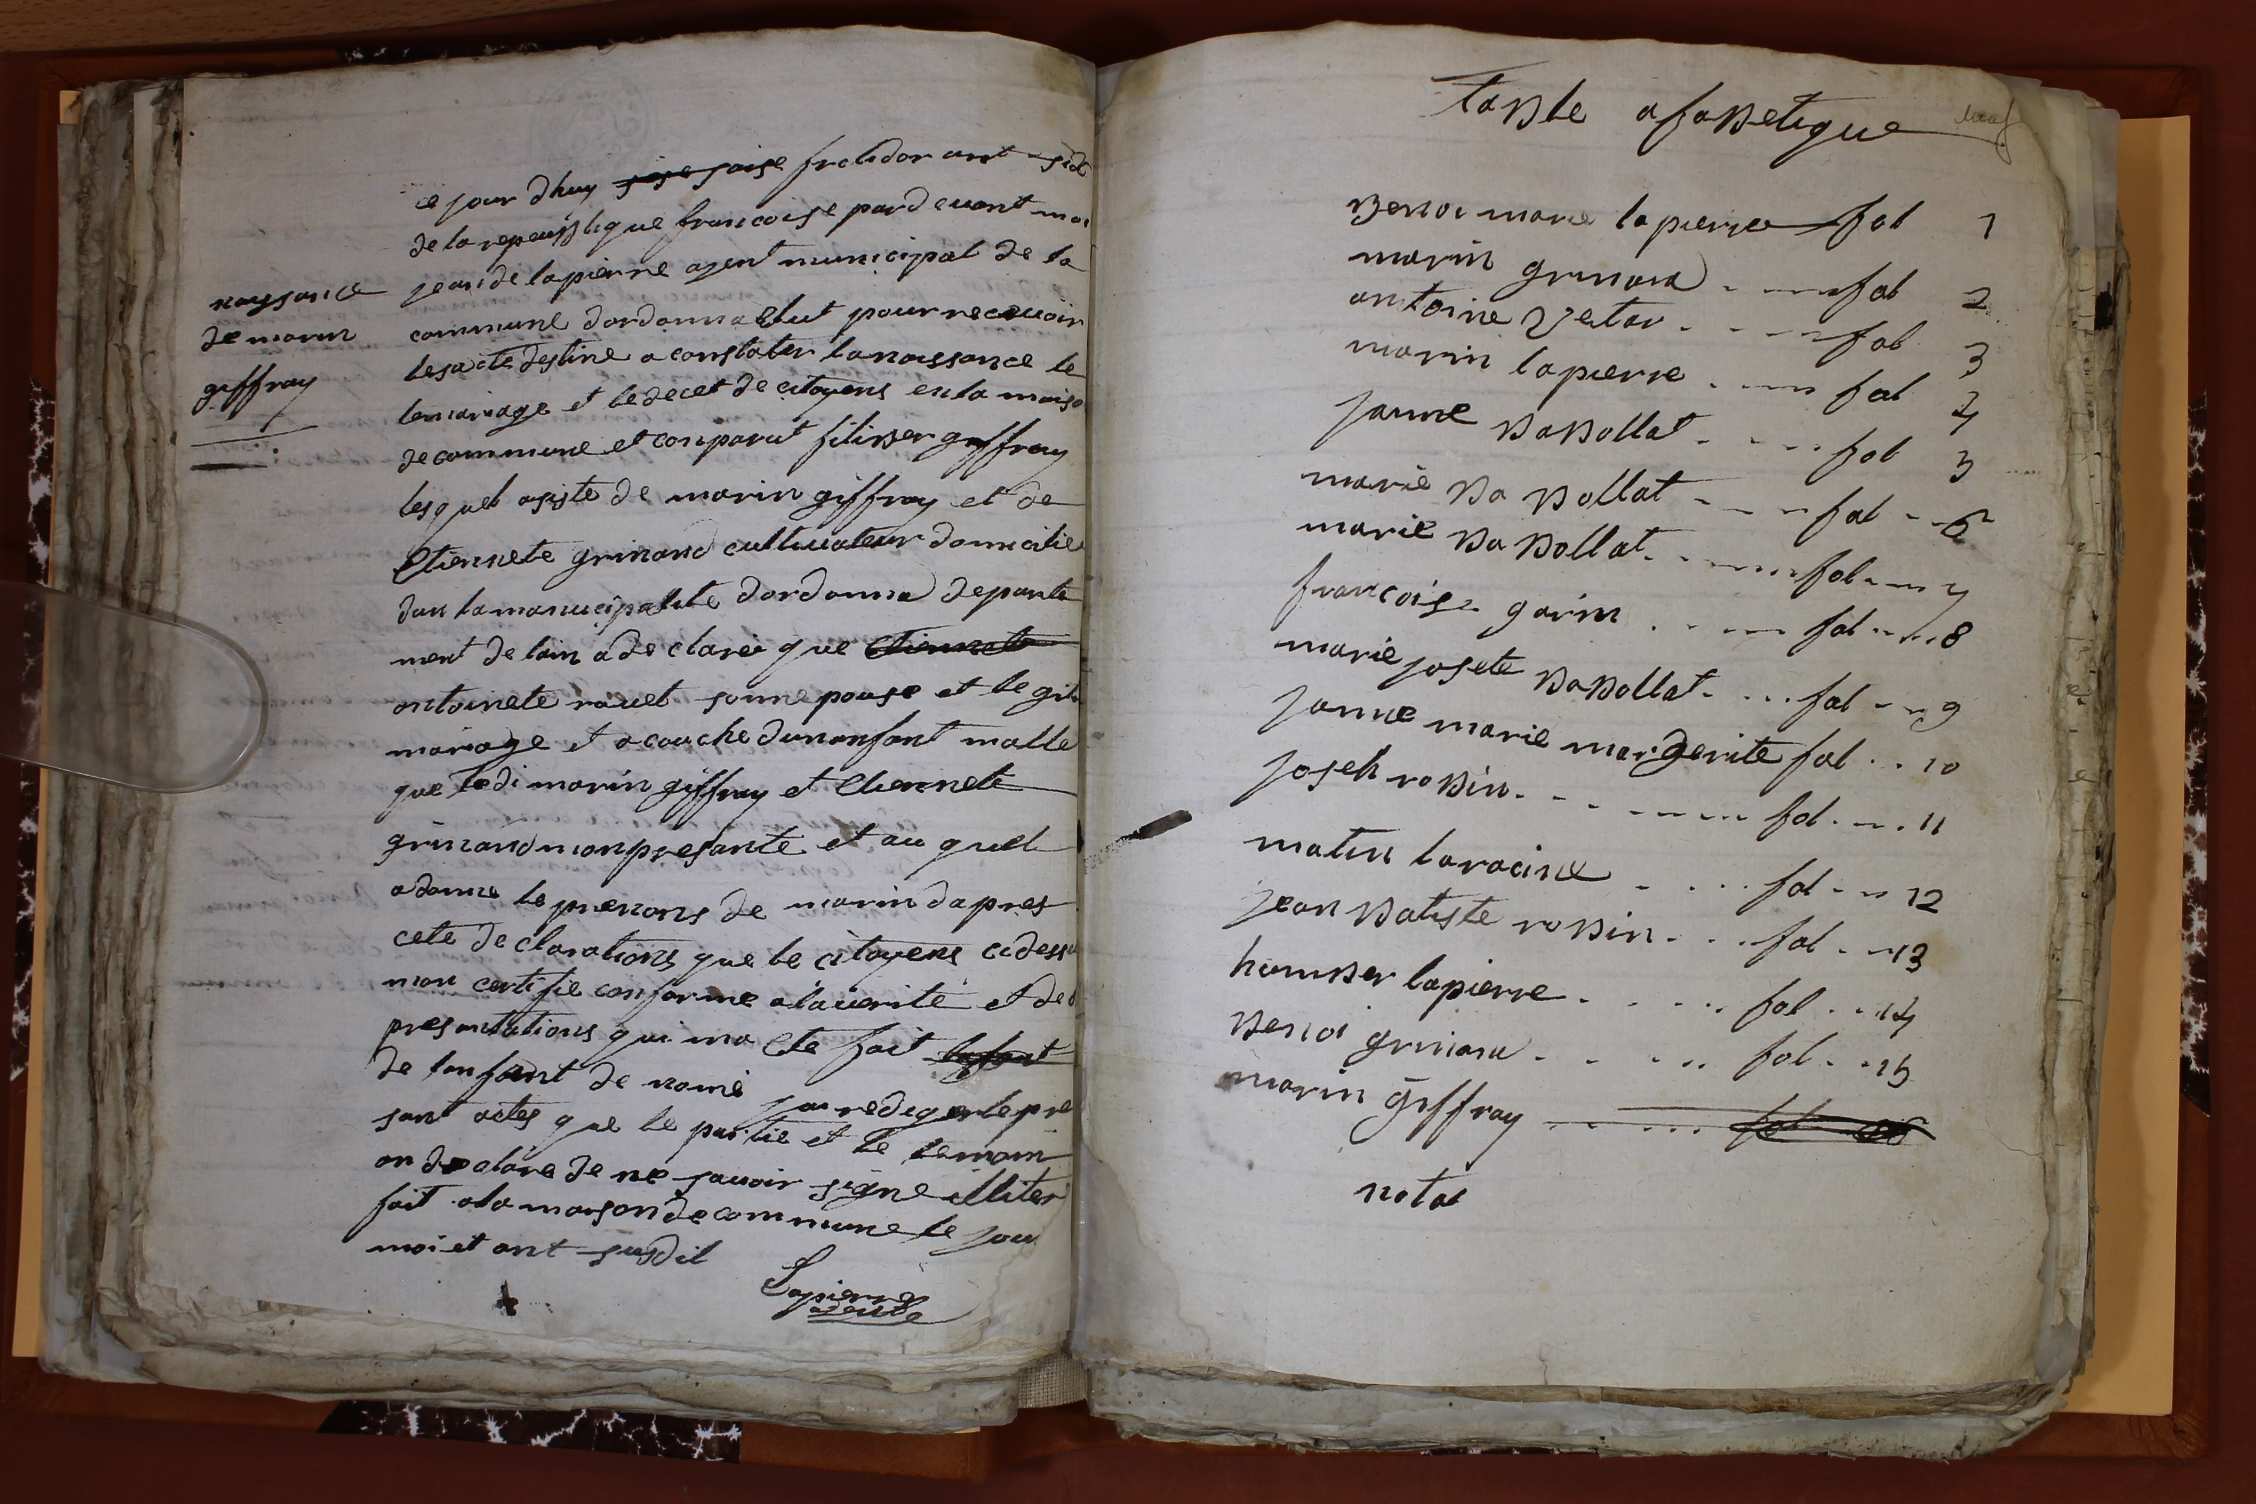 ce jour dhuy saise frctidor ant sis
de la repeublique francoise pard euant moi
jean de lapierre agent municipal de la
naysance
de marin
giffray
commune dordonna elut pour receuoir
lesacte destine a constater lanaissance le
lemariage et le decet de citoyens en la maiso
de commune et conparut filiber giffray
lesquel asiste de marin giffray et de
Etiennete grinand cultiuateur domicilie
dan lamanucipalite dordonna departe
ment de lain a de clarei que Etiennete
antoinete rauet sonne pouse et le giti
mariage et a couche dunanfant malle
que ledi marin giffray et Etiennete
grinand monpresante et au quel
adonne le prenons de marin dapres
cete declarations que le citoyens cidessu
mon certifie conforme alauerite et de l
presantations qui ma ete fait lanfant
de lanfant de nomé jai rediger le pre
sant actes que le partie et le temoin
on declare de ne sauoir signe illiteré
fait ala maison de commune le jour
moi et ant susdit
Lapierre
adeule
table afabetique
benoi marie lapierre fol 1
marin grinand fol 2
antoine Vetar fol 3
marin lapierre fol 4
janne babollat fol 5
marie ba bollat fol 6
marie ba bollat fol 7
francoise garin fol 8
marie josete babollat fol 9
janne marie margerite fol 10
joseh robin fol 11
matin laracine fol 12
jean batiste robin fol 13
humber lapierre fol 14
benoi grinand fol 15
marin giffray fol 16
nota